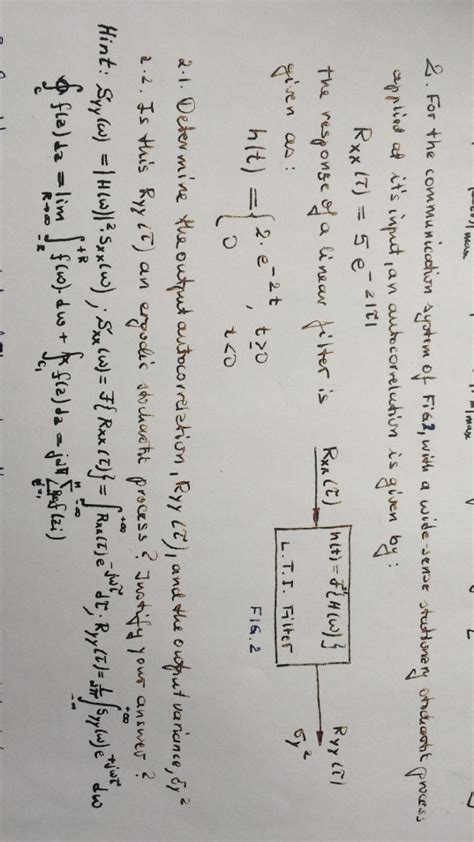 2. For the communication system of Fig2, with a wide-sense stationary stochastic process
applied at it's input, an autocorrelation is given by:
Rxx(τ) = 5 e^-2|τ|
the response of a linear filter is
given as:
h(t) = { 2·e^-2t , t≥0
0 t<0
Rxx(τ)
h(t) = F^-1{H(ω)}
L.T.I. Filter
Ryy(τ)
σy²
FIG.2
2.1. Determine the output autocorrelation, Ryy(τ), and the output variance, σy²
2.2. Is this Ryy(τ) an ergodic stochastic process? Justify your answer?
Hint: Syy(ω) = |H(ω)|² Sxx(ω); Sxx(ω) = F{Rxx(τ)} = ∫_-∞^+∞ Rxx(τ) e^-jωτ dτ; Ryy(τ) = 1/2π ∫_-∞^+∞ Syy(ω) e^+jωτ dω
∮_c f(z) dz = lim_R→∞ ∫_-R^+R f(ω)·dω + ∫_c1 f(z) dz =